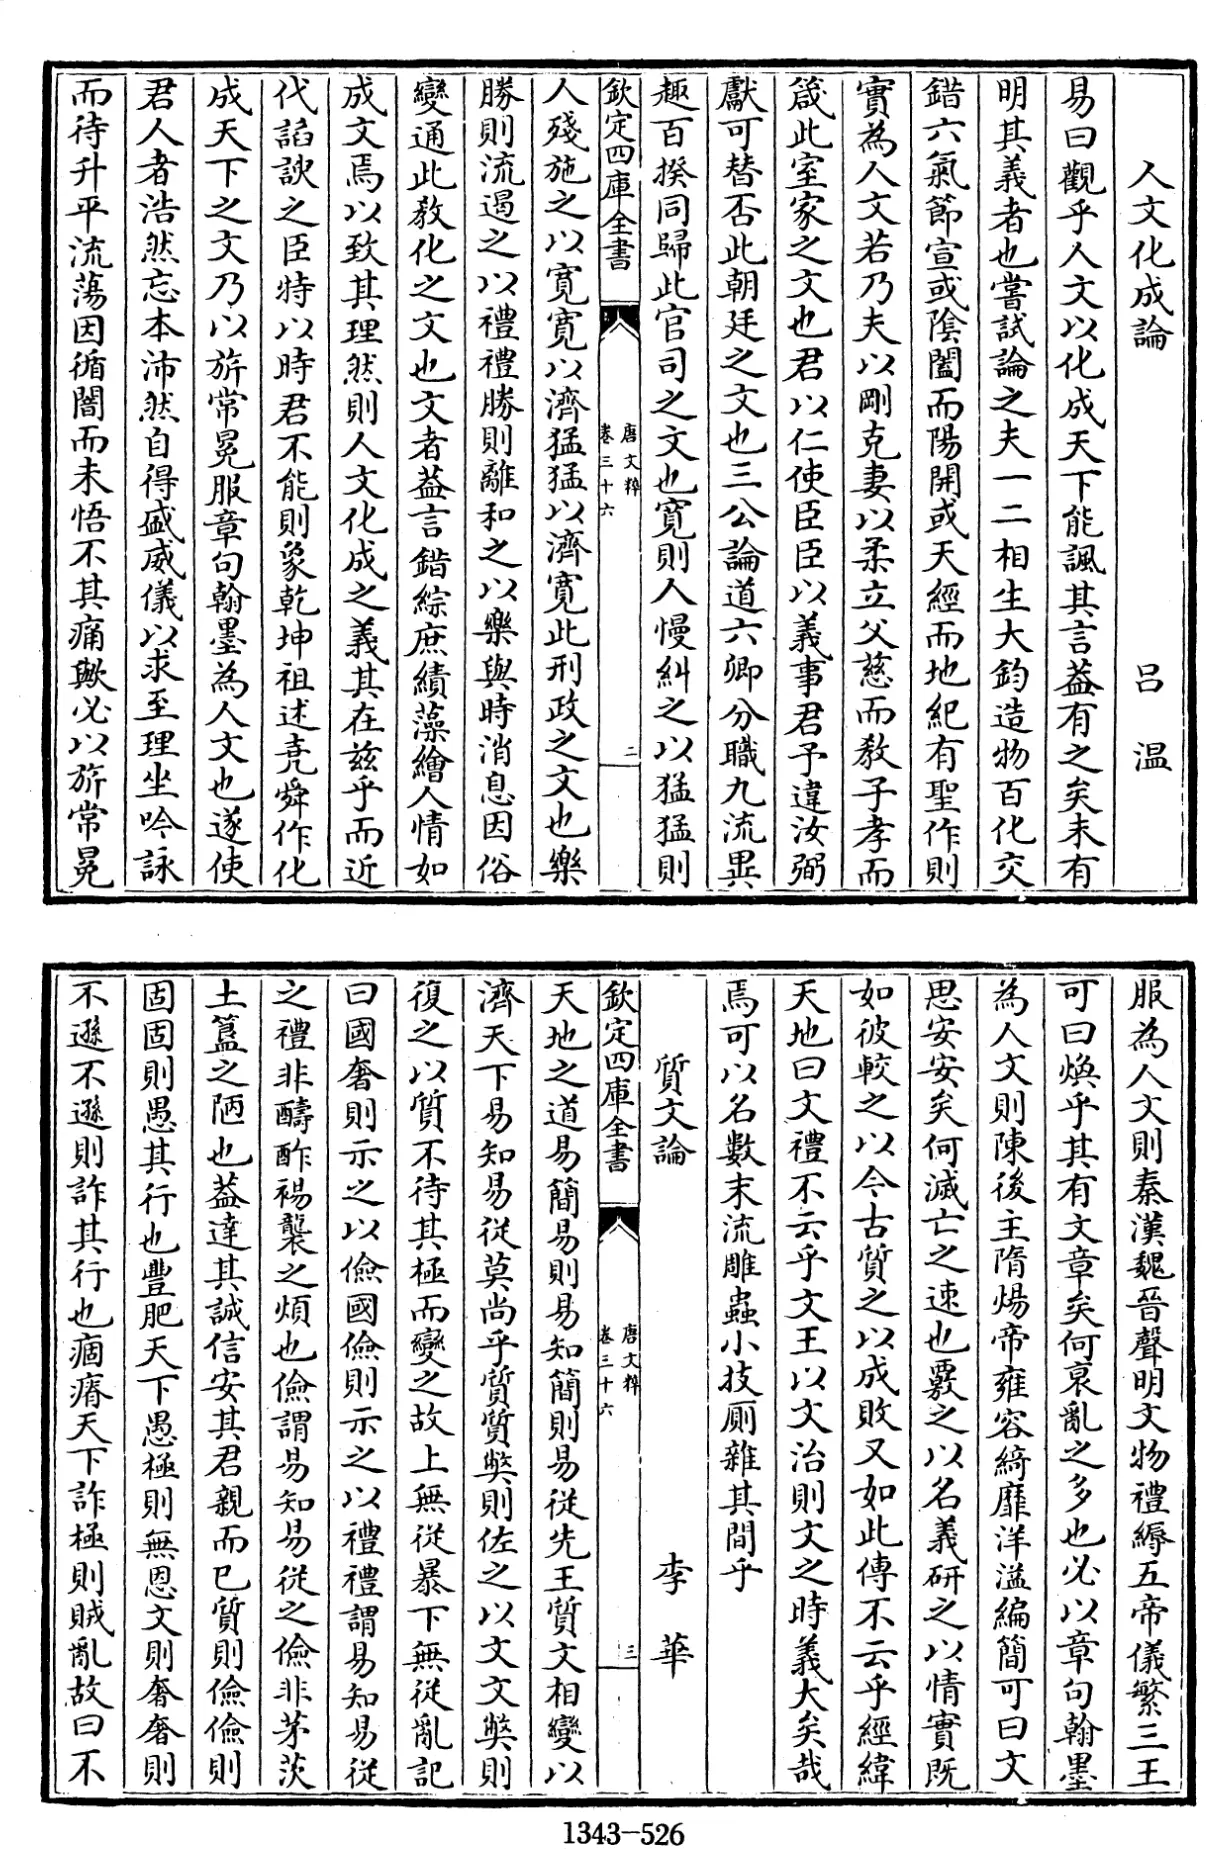 人文化成論　吕溫
易曰觀乎人文以化成天下能諷其言葢有之矣未有
明其義者也嘗試論之夫一二相生大鈞造物百化交
錯六氣節宣或陰闔而陽開或天經而地紀有聖作則
實為人文若乃夫以剛克妻以柔立父慈而教子孝而
箴此室家之文也君以仁使臣臣以義事君予違汝弼
獻可替否此朝廷之文也三公論道六卿分職九流異
趣百揆同歸此官司之文也寛則人慢糾之以猛猛則
欽定四庫全書　唐文粹　卷三十六　二
人殘施之以寛寛以濟猛猛以濟寛此刑政之文也樂
勝則流遏之以禮禮勝則離和之以樂與時消息因俗
變通此教化之文也文者葢言錯綜庶績藻繪人情如
成文焉以致其理然則人文化成之義其在兹乎而近
代諂諛之臣特以時君不能則象乾坤祖述堯舜作化
成天下之文乃以旂常冕服章句翰墨為人文也遂使
君人者浩然忘本沛然自得盛威儀以求至理坐吟詠
而待升平流蕩因循闇而未悟不其痛歟必以旂常冕
服為人文則秦漢魏晉聲明文物禮縟五帝儀繁三王
可曰煥乎其有文章矣何衰亂之多也必以章句翰墨
為人文則陳後主隋煬帝雍容綺靡洋溢編簡可曰文
思安安矣何滅亡之速也覈之以名義研之以情實既
如彼較之以今古質之以成敗又如此傳不云乎經緯
天地曰文禮不云乎文王以文治則文之時義大矣哉
焉可以名數末流雕蟲小技厠雜其間乎
質文論　李華
欽定四庫全書　唐文粹　卷三十六　三
天地之道易簡易則易知簡則易從先王質文相變以
濟天下易知易從莫尚乎質質弊則佐之以文文弊則
復之以質不待其極而變之故上無從暴下無從亂記
曰國奢則示之以儉國儉則示之以禮禮謂易知易從
之禮非酬酢裼襲之煩也儉謂易知易從之儉非茅茨
土簋之陋也葢達其誠信安其君親而已質則儉儉則
固固則愚其行也豐肥天下愚極則無恩文則奢奢則
不遜不遜則詐其行也痼瘠天下詐極則賊亂故曰不
1343-526